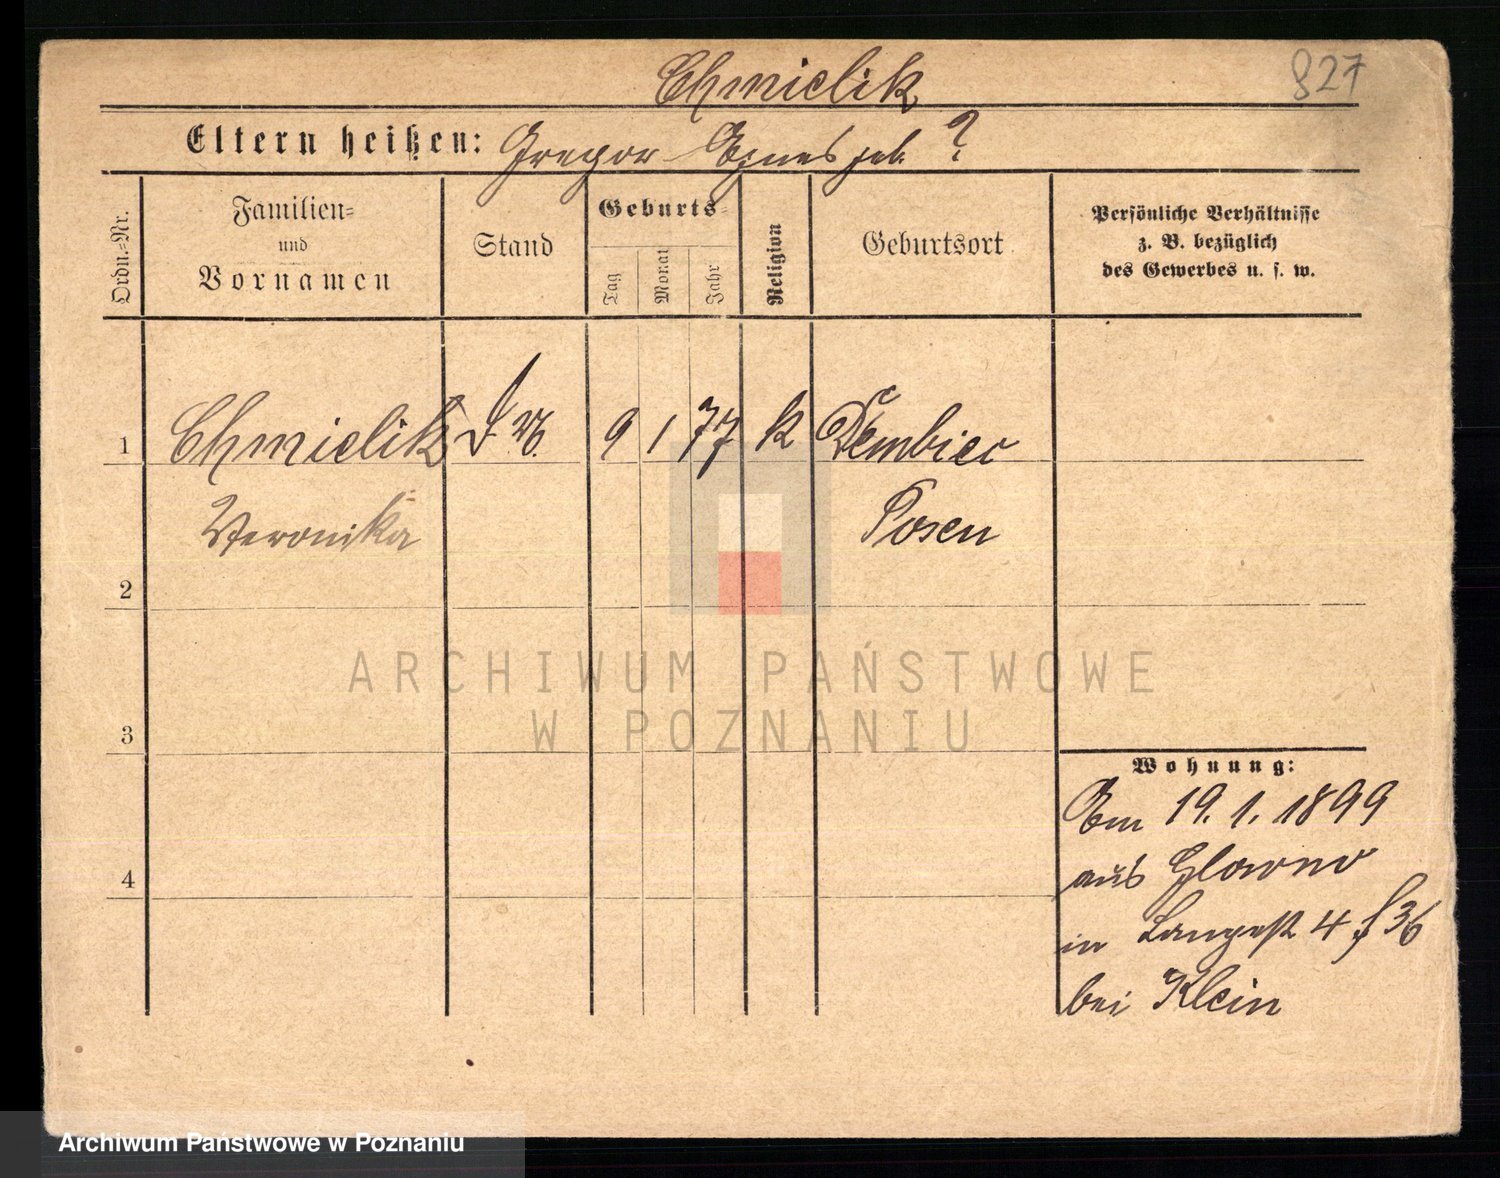 Chmielik
827
Eltern heißen: Gregor Agnes geb. ?
Ordn.-Nr.
Familien-
und
Vornamen
Stand
Geburts-
Tag
Monat
Jahr
Religion
Geburtsort
Persönliche Verhältnisse
z. B. bezüglich
des Gewerbes u. s. w.
1 Chmielik 9 1 77 k Dembiec
Veronika Posen
2
3
4
Wohnung:
Am 19. 1. 1899
aus Glowno
in Langestr 4 36
bei Klein
ARCHIWUM PAŃSTWOWE
W POZNANIU
Archiwum Państwowe w Poznaniu